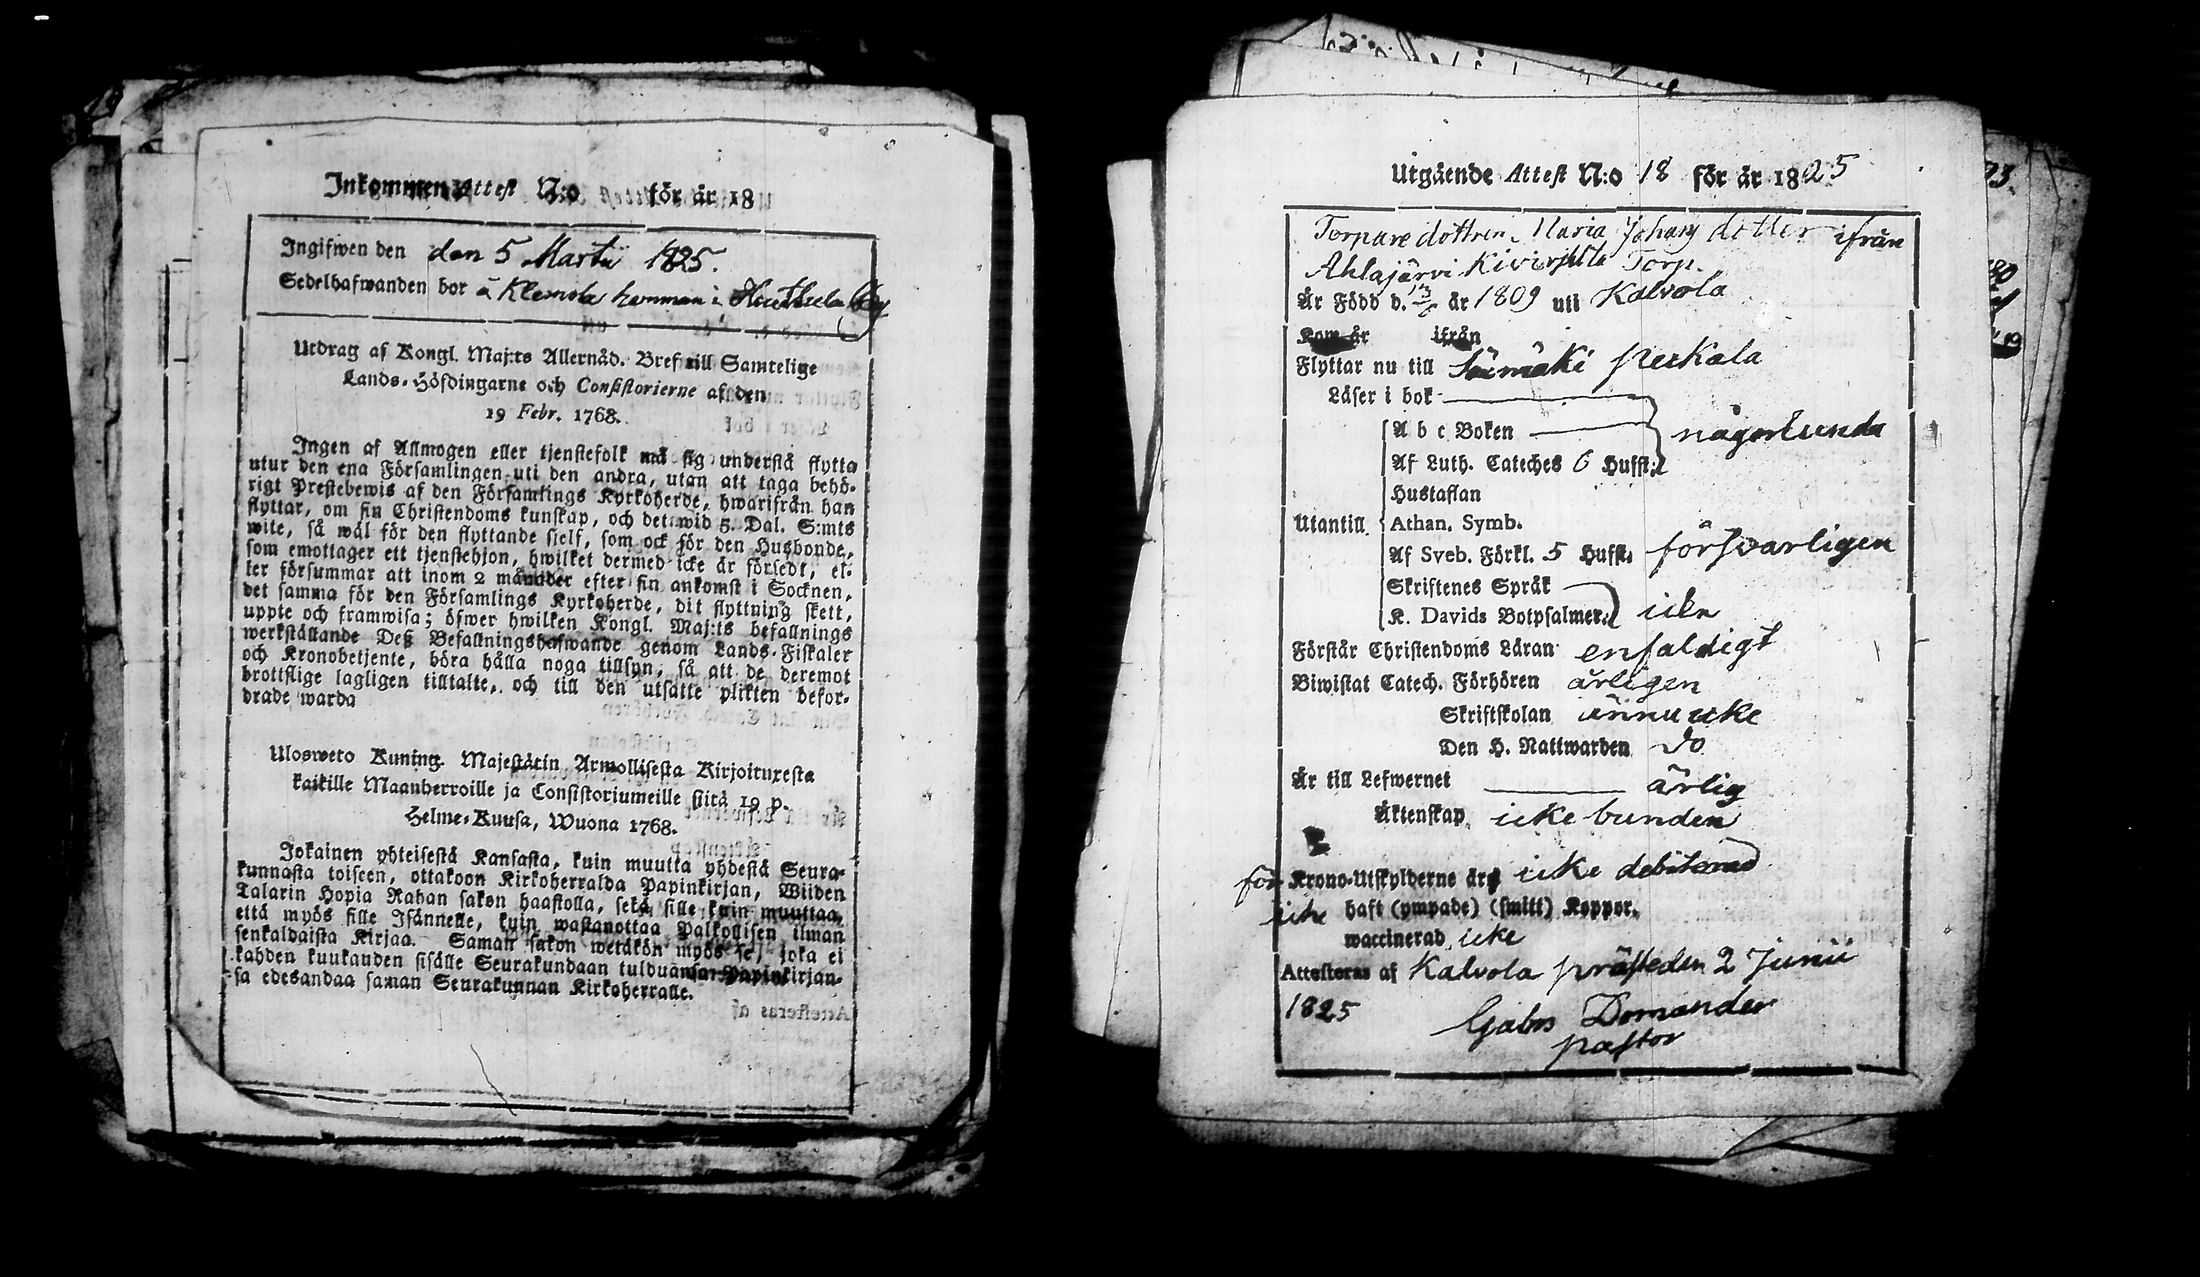 Inkommen Attest N:o för år 18
Ingifwen den den 5 Martii 1825.
Sedelhafwanden bor å Klemola hemman i by
Utdrag af Kongl. Maj:ts Allernåd. Bref till Samtelige
Lands-Höfdingarne och Consistorierne af den
19 Febr. 1768.
Ingen af Allmogen eller tjenstefolk må sig understå flytta
utur den ena Församlingen uti den andra, utan att taga behö-
rigt Prestebewis af den Församlings Kyrkoherde, hwarifrån han
flyttar, om sin Christendoms kunskap, och det wid 5. Dal. S:mts
wite, så wäl för den flyttande sielf, som ock för den Husbonde,
som emottager ett tjenstehjon, hwilket dermed icke är försedt, el-
ler försummar att inom 2 månader efter sin ankomst i Socknen,
det samma för den Församlings Kyrkoherde, dit flyttning skett,
uppte och framwisa; öfwer hwilken Kongl. Maj:ts befallnings
werkställande Deß Befallningshafwande genom Lands-Fiskaler
och Kronobetjente, böra hålla noga tillsyn, så att de deremot
brottslige lagligen tilltalte, och till den utsatte plikten befor-
drade warda
Ulosweto Kuning. Majestätin Armollisesta Kirjoituxesta
kaikille Maanherroille ja Consistoriumeille siitä 19 p.
Helme-Kuusa, Wuona 1768.
Jokainen yhteisestä Kansasta, kuin muutta yhdestä Seura-
kunnasta toiseen, ottakoon Kirkoherralda Papinkirjan, Wiiden
Talarin Hopia Rahan sakon haastolla, sekä sille kuin muuttaa,
että myös sille Isännelle, kuin wastanottaa Palkollisen ilman
senkaldaista Kirjaa. Saman sakon wetäkön myös se, joka ei
kahden kuukauden sisälle Seurakundaan tulduansa Papinkirjan-
sa edesandaa saman Seurakunnan Kirkoherralle.
Utgående Attest N:o 18 för år 1825
Torpare dottren Maria Johans dotter ifrån
Ahlajärvi Torp.
Är Född d. 13/6 år 1809 uti Kalvola
Kom år ifrån
Flyttar nu till
Läser i bok
A b c Boken någorlunda
Af Luth. Cateches 6 Hufst.
Hustaflan
Utantill Athan. Symb.
Af Sveb. Förkl. 5 Hufst. försvarligen
Skriftenes Språk
K. Davids Botpsalmer. icke
Förstår Christendoms Läran enfaldigt
Biwistat Catech. Förhören årligen
Skriftskolan ännu icke
Den H. Nattwarden do
Är till Lefwernet ärlig
Äktenskap icke bunden
för Krono-Utskylderne är icke debiterad
icke haft (ympade) (smitt) Koppor.
waccinerad icke
Attesteras af Kalvola präste den 2 Junii
1825 Gabr Domander
pastor